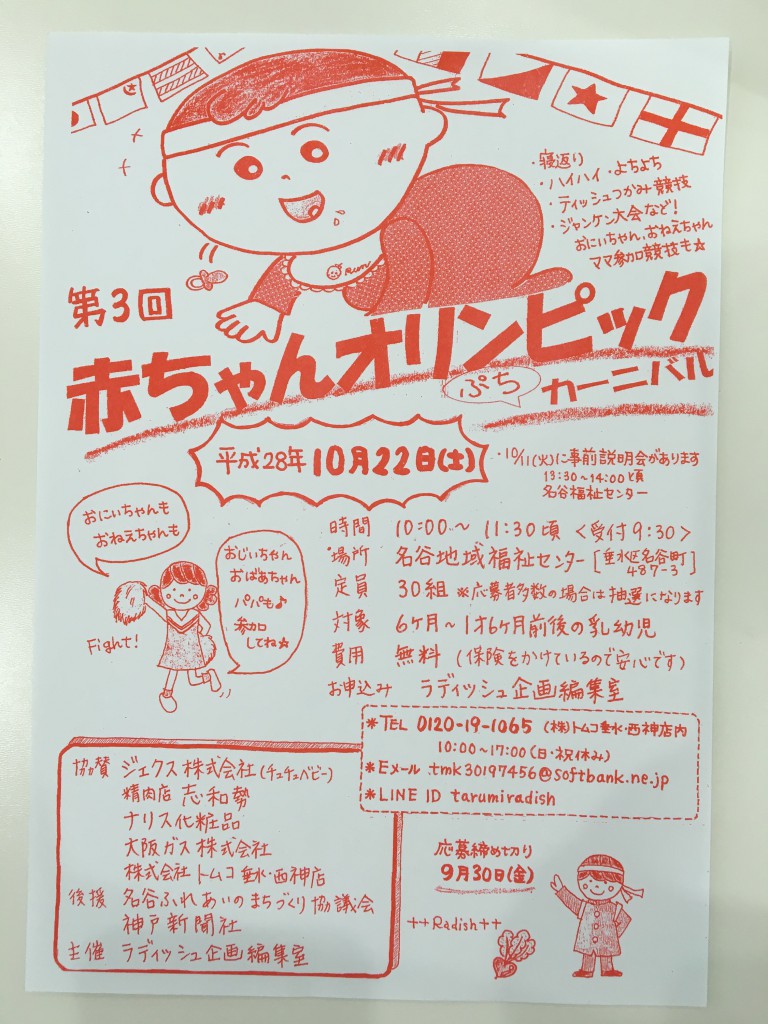 ・寝返り
・ハイハイ・よちよち
・ティッシュつかみ競技
・ジャンケン大会など!
おにいちゃん、おねえちゃん
ママ参加競技も☆
Run
第3回
赤ちゃんオリンピック
ぷち カーニバル
平成28年 10月22日(土)
・10/11(火)に事前説明会があります
13:30~14:00頃
名谷福祉センター
おにいちゃんも
おねえちゃんも
おじいちゃん
おばあちゃん
パパも♪
参加
してね☆
Fight!
時間 10:00~11:30頃 <受付9:30>
場所 名谷地域福祉センター [垂水区名谷町
487-3]
定員 30組 ※応募者多数の場合は抽選になります
対象 6ヶ月~1才6ヶ月前後の乳幼児
費用 無料 (保険をかけているので安心です)
お申込み ラディッシュ企画編集室
*TEL 0120-19-1065 (株)トムコ垂水・西神店内
10:00~17:00(日・祝休み)
*Eメール tmk30197456@softbank.ne.jp
*LINE ID tarumiradish
協賛 ジェクス株式会社(チュチュベビー)
精肉店 志和勢
ナリス化粧品
大阪ガス株式会社
株式会社トムコ垂水・西神店
後援 名谷ふれあいのまちづくり協議会
神戸新聞社
主催 ラディッシュ企画編集室
応募締め切り
9月30日(金)
++Radish++